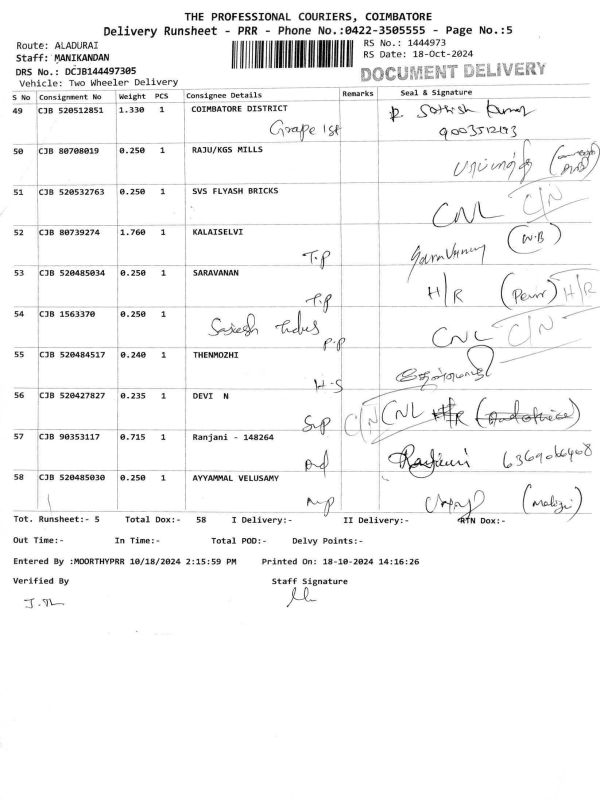 THE PROFESSIONAL COURIERS, COIMBATORE
Delivery Runsheet - PRR - Phone No.:0422-3505555 - Page No.:5
Route: ALADURAI
RS No.: 1444973
Staff: MANIKANDAN
RS Date: 18-Oct-2024
DRS No.: DCJB144497305
DOCUMENT DELIVERY
Vehicle: Two Wheeler Delivery
S No Consignment No Weight PCS Consignee Details Remarks Seal & Signature
49 CJB 520512851 1.330 1 COIMBATORE DISTRICT
Grape 1st
50 CJB 80708019 0.250 1 RAJU/KGS MILLS
51 CJB 520532763 0.250 1 SVS FLYASH BRICKS
CNL C/N
52 CJB 80739274 1.760 1 KALAISELVI
T.P (W.B)
53 CJB 520485034 0.250 1 SARAVANAN
T.P H/R H/R
54 CJB 1563370 0.250 1
P.P CNL C/N
55 CJB 520484517 0.240 1 THENMOZHI
H-S
56 CJB 520427827 0.235 1 DEVI N
C/N CNL
57 CJB 90353117 0.715 1 Ranjani - 148264
58 CJB 520485030 0.250 1 AYYAMMAL VELUSAMY
Tot. Runsheet:- 5 Total Dox:- 58 I Delivery:- II Delivery:- RTN Dox:-
Out Time:- In Time:- Total POD:- Delvy Points:-
Entered By :MOORTHYPRR 10/18/2024 2:15:59 PM Printed On: 18-10-2024 14:16:26
Verified By Staff Signature